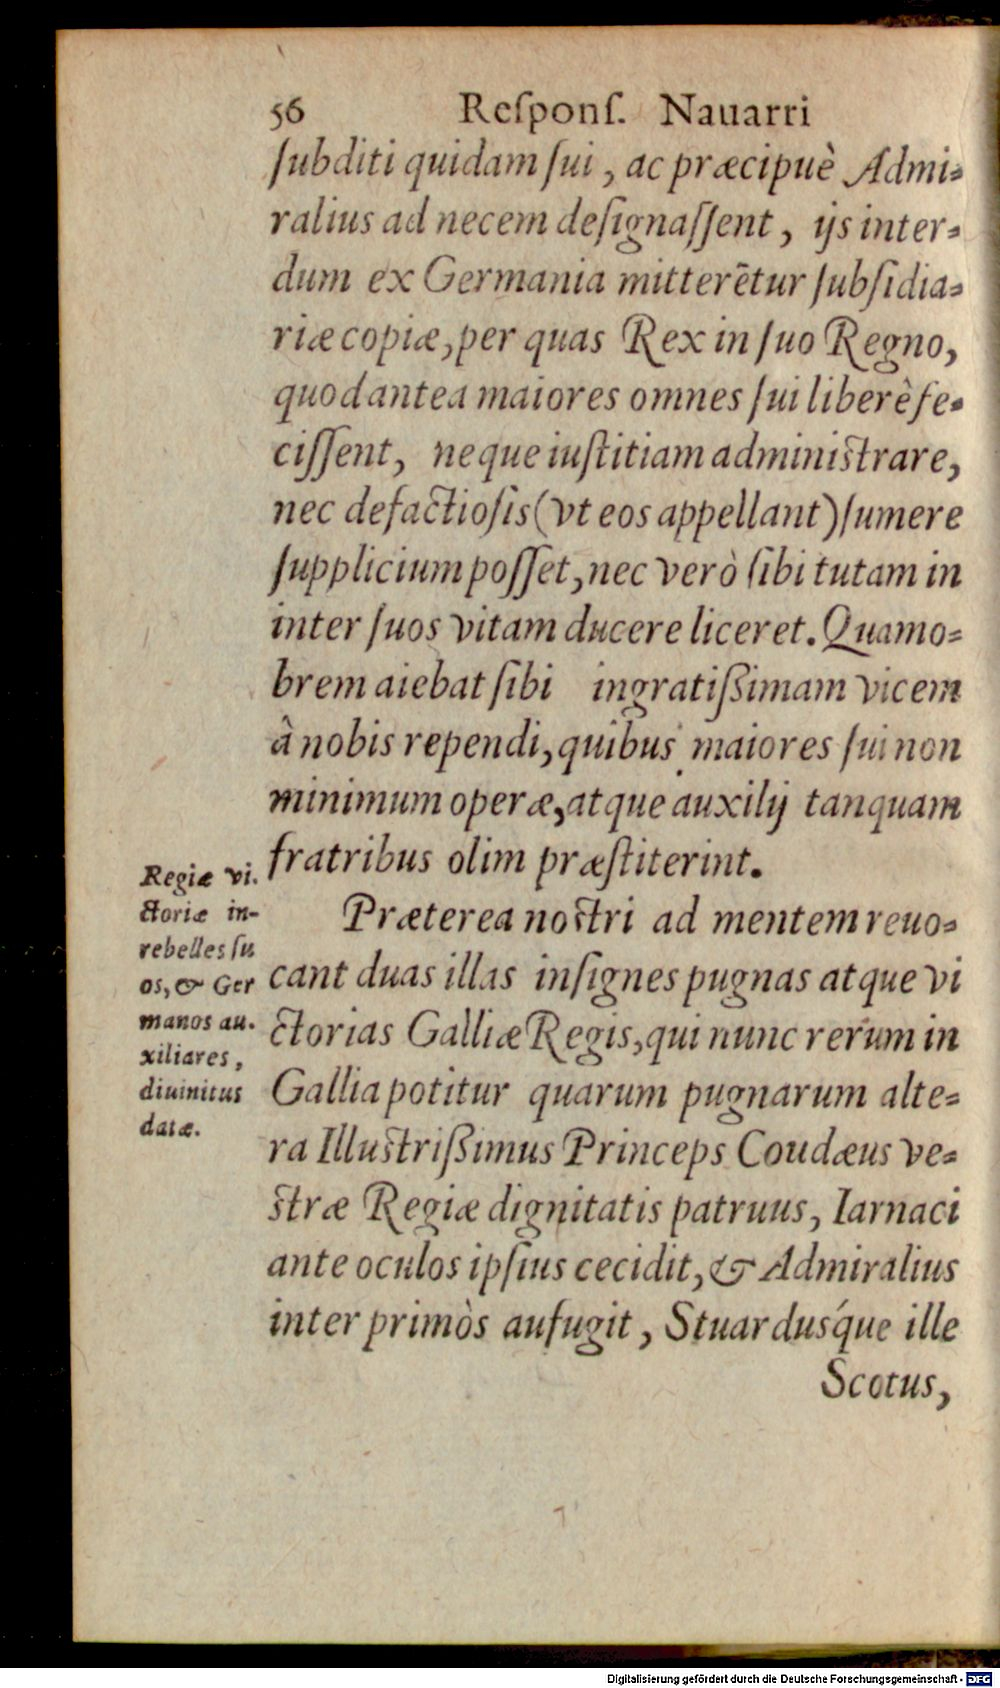 56 Reſponſ. Nauarri
ſubditi quidam ſui, ac præcipuè Admi-
ralius ad necem deſignaſſent, ijs inter-
dum ex Germania mitterẽtur ſubſidia-
riæ copiæ, per quas Rex in ſuo Regno,
quod antea maiores omnes ſui liberè fe-
ciſſent, neque iuſtitiam adminiſtrare,
nec defactioſis (vt eos appellant) ſumere
ſupplicium poſſet, nec verò ſibi tutam in
inter ſuos vitam ducere liceret. Quamo-
brem aiebat ſibi ingratißimam vicem
â nobis rependi, quibus maiores ſui non
minimum operæ, atque auxilij tanquam
fratribus olim præſtiterint.
Præterea noſtri ad mentem reuo-
cant duas illas inſignes pugnas atque vi
ctorias Galliæ Regis, qui nunc rerum in
Gallia potitur quarum pugnarum alte-
ra Illuſtrißimus Princeps Coudæus ve-
ſtræ Regiæ dignitatis patruus, Iarnaci
ante oculos ipſius cecidit, & Admiralius
inter primòs aufugit, Stuarduſq́ue ille
Scotus,
Regiæ vi-
ctoriæ in-
rebelles ſu
os, & Ger
manos au-
xiliares,
diuinitus
datæ.
Digitalisierung gefördert durch die Deutsche Forschungsgemeinschaft - DFG